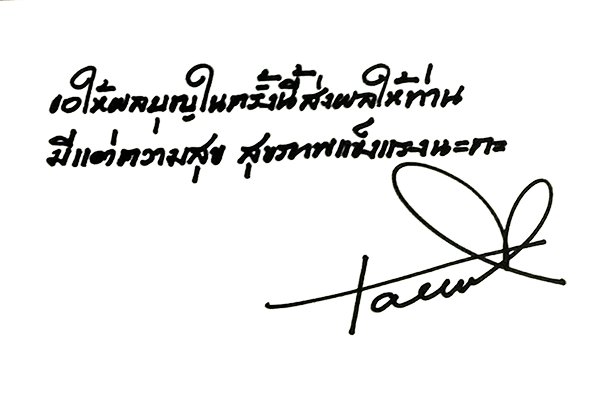 ขอให้ผลบุญในครั้งนี้ส่งผลให้ท่าน
มีแต่ความสุข สุขภาพแข็งแรงนะคะ